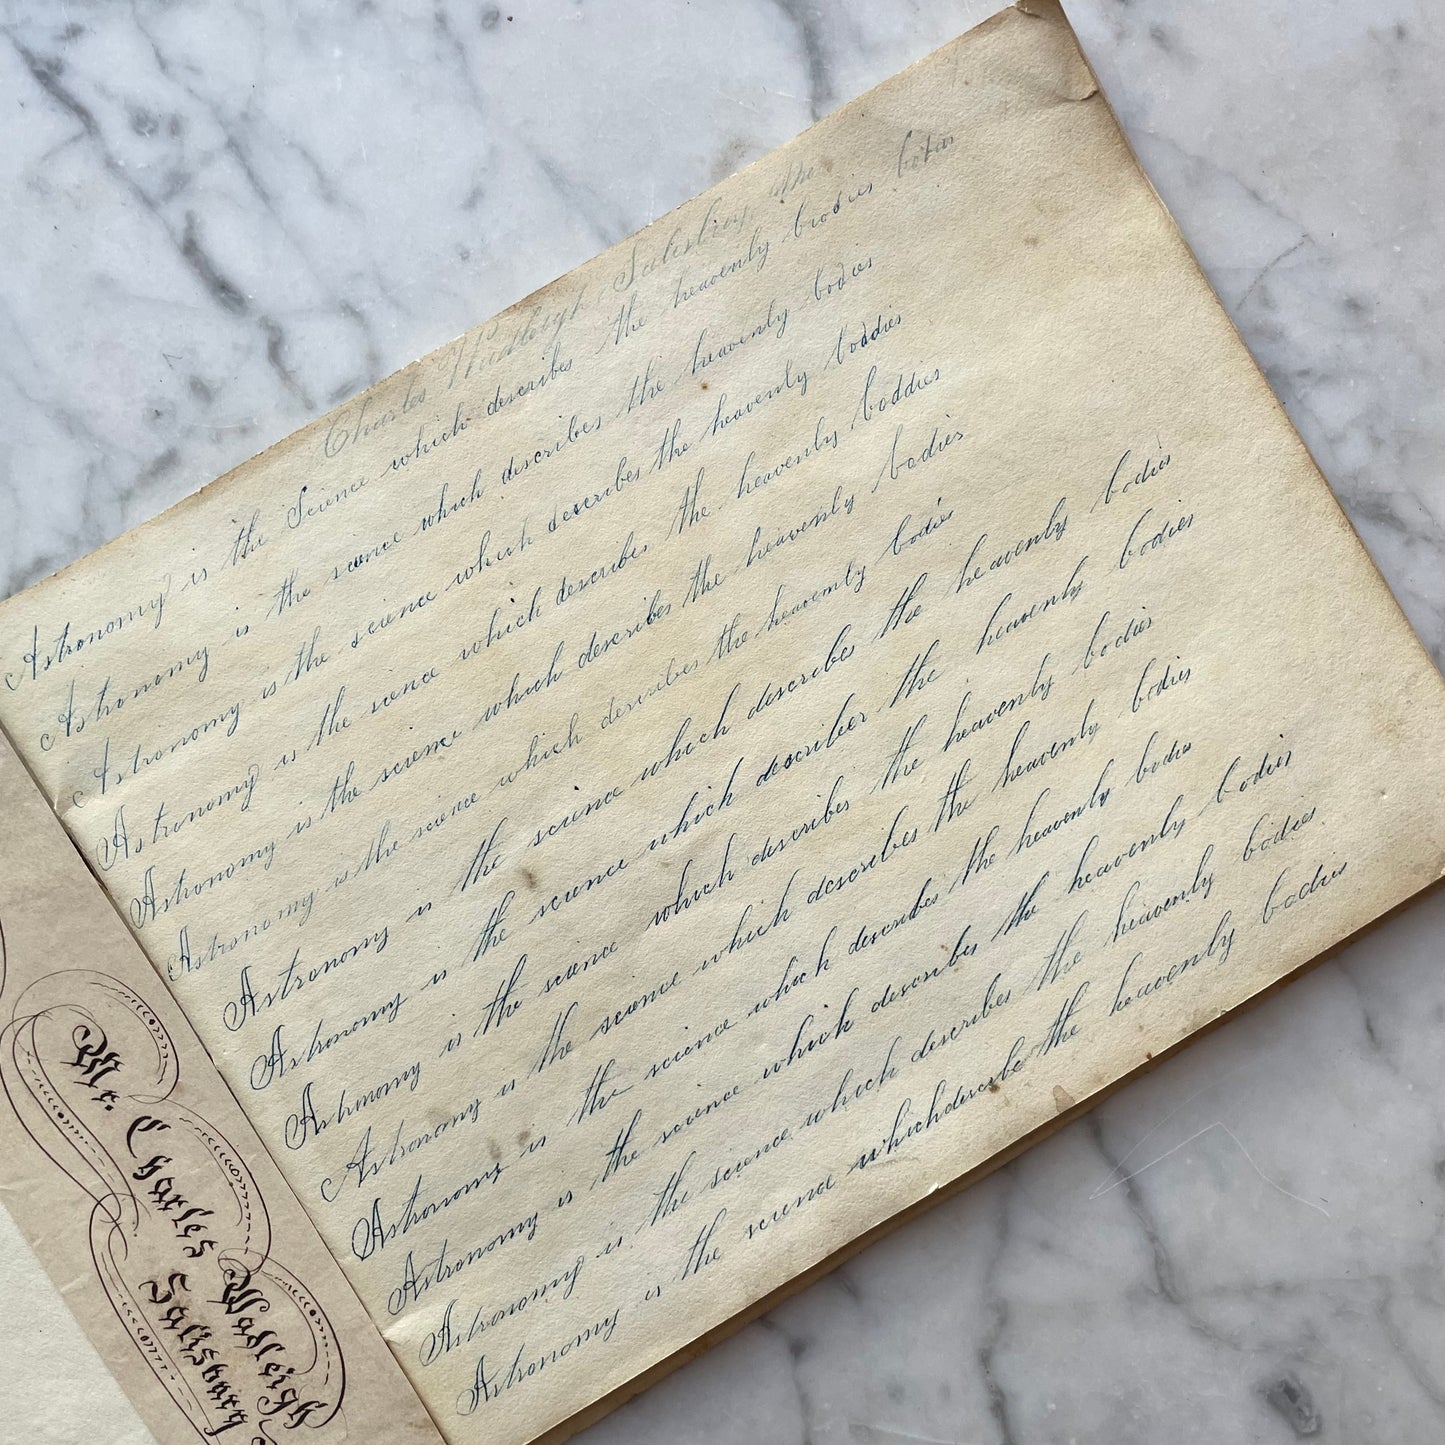 Charles Wadleigh Salesbry, the
Astronomy is the Science which describes the heavenly brodies
Astronomy is the science which describes the heavenly bodies
Astronomy is the science which describes the heavenly boddies
Astronomy is the science which describes the heavenly boddies
Astronomy is the science which describes the heavenly bodies
Astronomy is the science which describes the heavenly bodies
Astronomy is the science which describes the heavenly bodies
Astronomy is the science which describes the heavenly bodies
Astronomy is the science which describes the heavenly bodies
Astronomy is the science which describes the heavenly bodies
Astronomy is the science which describes the heavenly bodies
Astronomy is the science which describes the heavenly bodies
Astronomy is the science which describes the heavenly bodies
Astronomy is the science whichdescribe the heavenly bodies
Mr. Charles Wadleigh
Salisbury